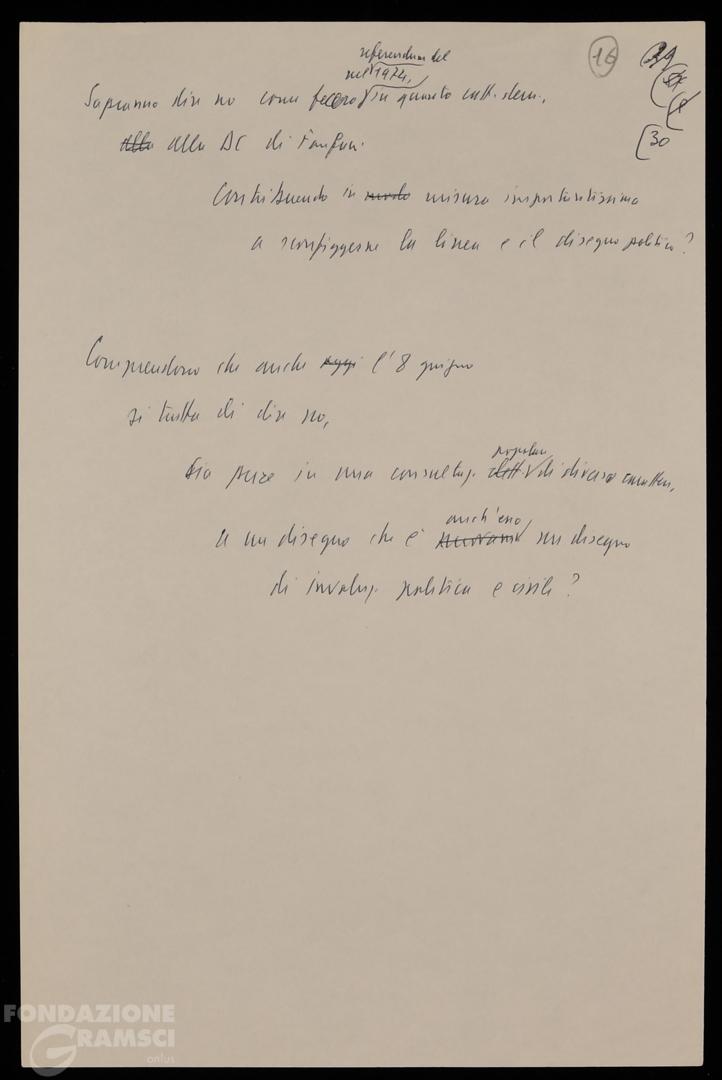 16
30
referendum del
nel 1974,
Sapranno dire no come fecero in quanto catt. dem.,
alla alla DC di Fanfani.
Contribuendo in modo misura importantissima
a sconfiggerne la linea e il disegno politico?
Comprendono che anche oggi l'8 giugno
si tratta di dire no,
popolare
sia pure in una consultaz. di diverso carattere,
anch'esso
a un disegno che è un disegno
di involuz. politica e civile?
FONDAZIONE
GRAMSCI
onlus